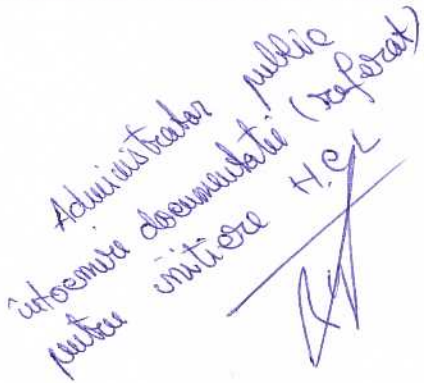 Administrator public
întocmire documentatie (referat)
pentru initiere H.C.L